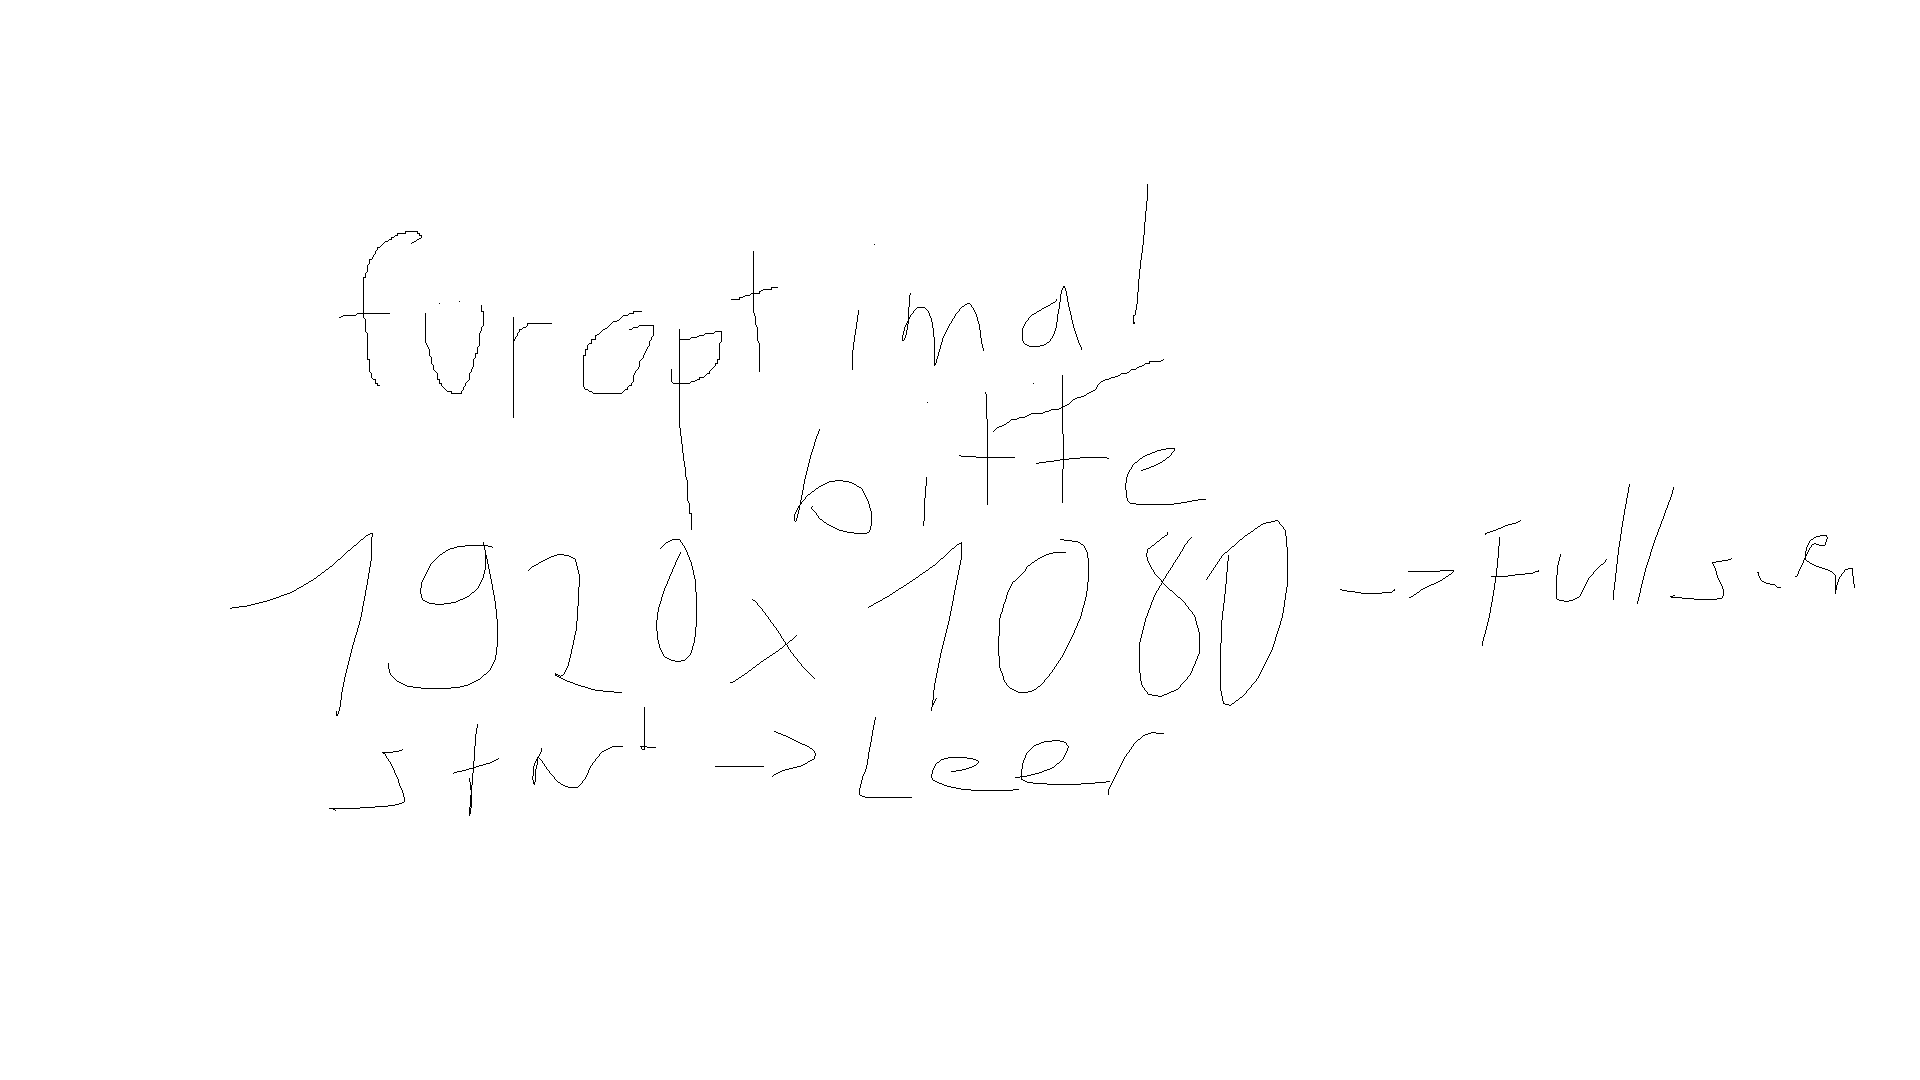 für optimal
bitte
1920 x 1080 -> Fullscreen
strl -> Leer